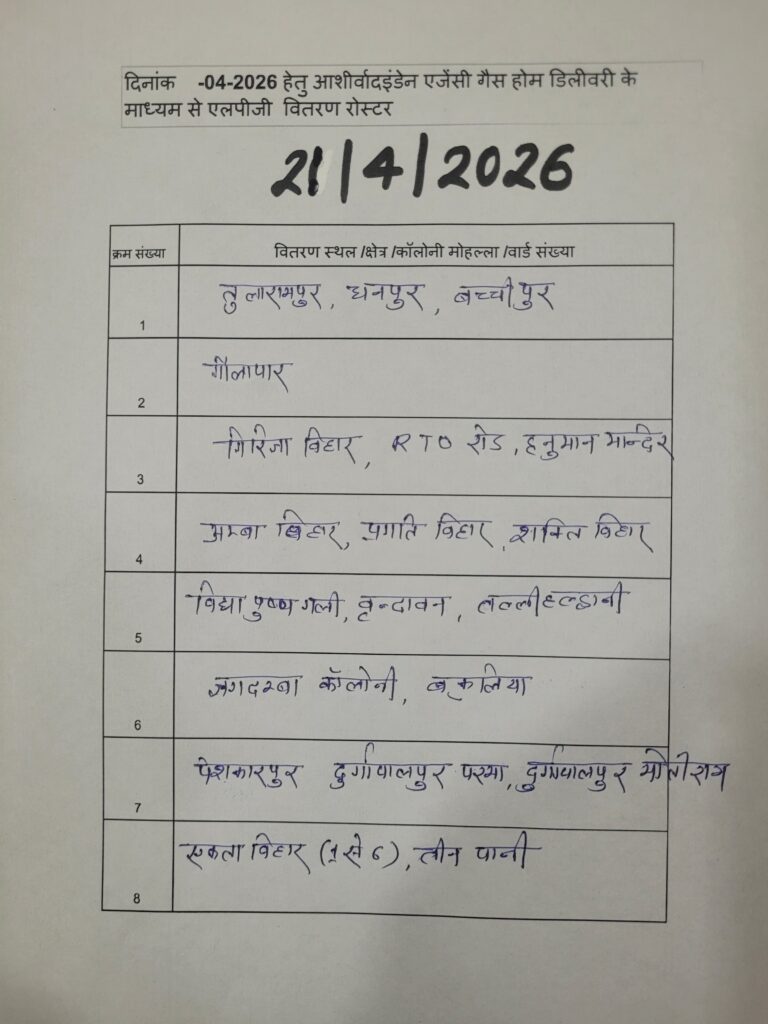 दिनांक -04-2026 हेतु आशीर्वादइंडेन एजेंसी गैस होम डिलीवरी के
माध्यम से एलपीजी वितरण रोस्टर
21/4/2026
क्रम संख्या वितरण स्थल /क्षेत्र /कॉलोनी मोहल्ला /वार्ड संख्या
1 तुलारामपुर, धनपुर, बच्चीपुर
2 गौलापार
3 गिरिजा विहार, RTO रोड, हनुमान मान्दिर
4 अम्बा विहार, प्रगति विहार, शक्ति विहार
5 विद्या पुष्प गली, वृन्दावन, तल्लीहल्द्वानी
6 जगदम्बा कॉलोनी, बकुलिया
7 पेशकारपुर दुर्गापालपुर परमा, दुर्गापालपुर मोतीराम
8 एकता विहार (1 से 6), तीन पानी